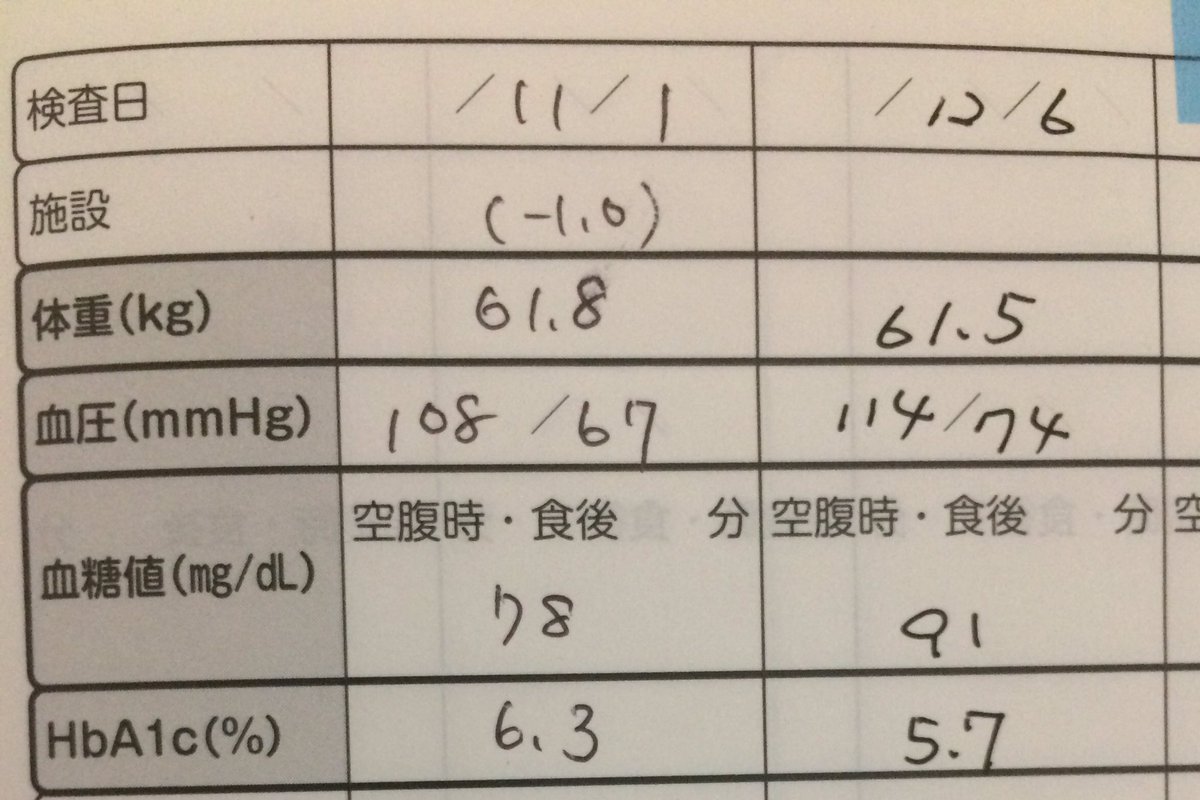 検査日 /11/1 /12/6
施設 (-1.0)
体重(kg) 61.8 61.5
血圧(mmHg) 108/67 114/74
血糖値(mg/dL) 空腹時・食後 分 空腹時・食後 分 空
78 91
HbA1c(%) 6.3 5.7